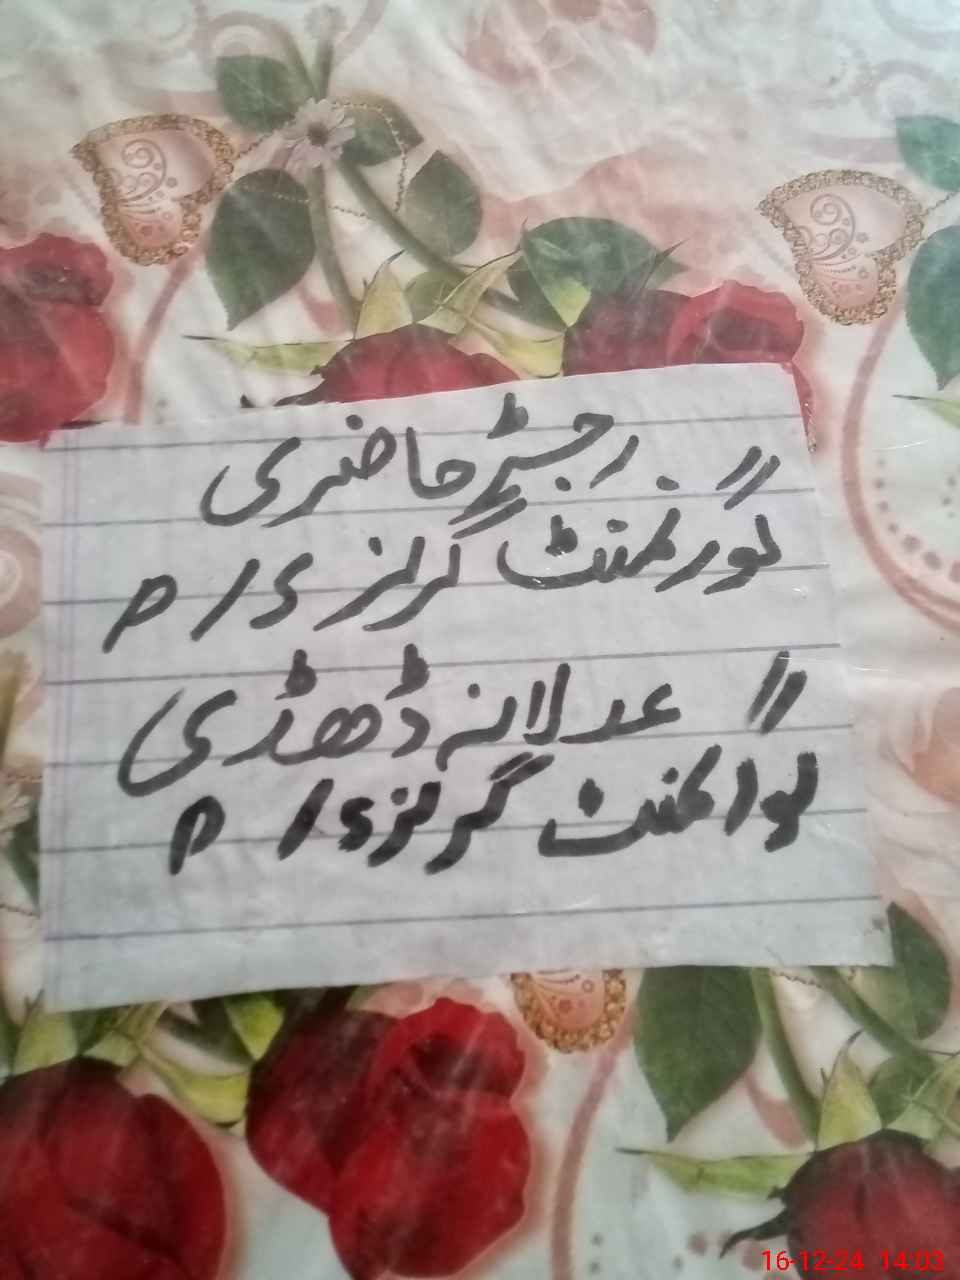 رجسٹر حاضری
گورنمنٹ گرلز ء / م
// عدلانہ ڈھڈی
گورنمنٹ گرلز ء / م
16-12-24 14:03